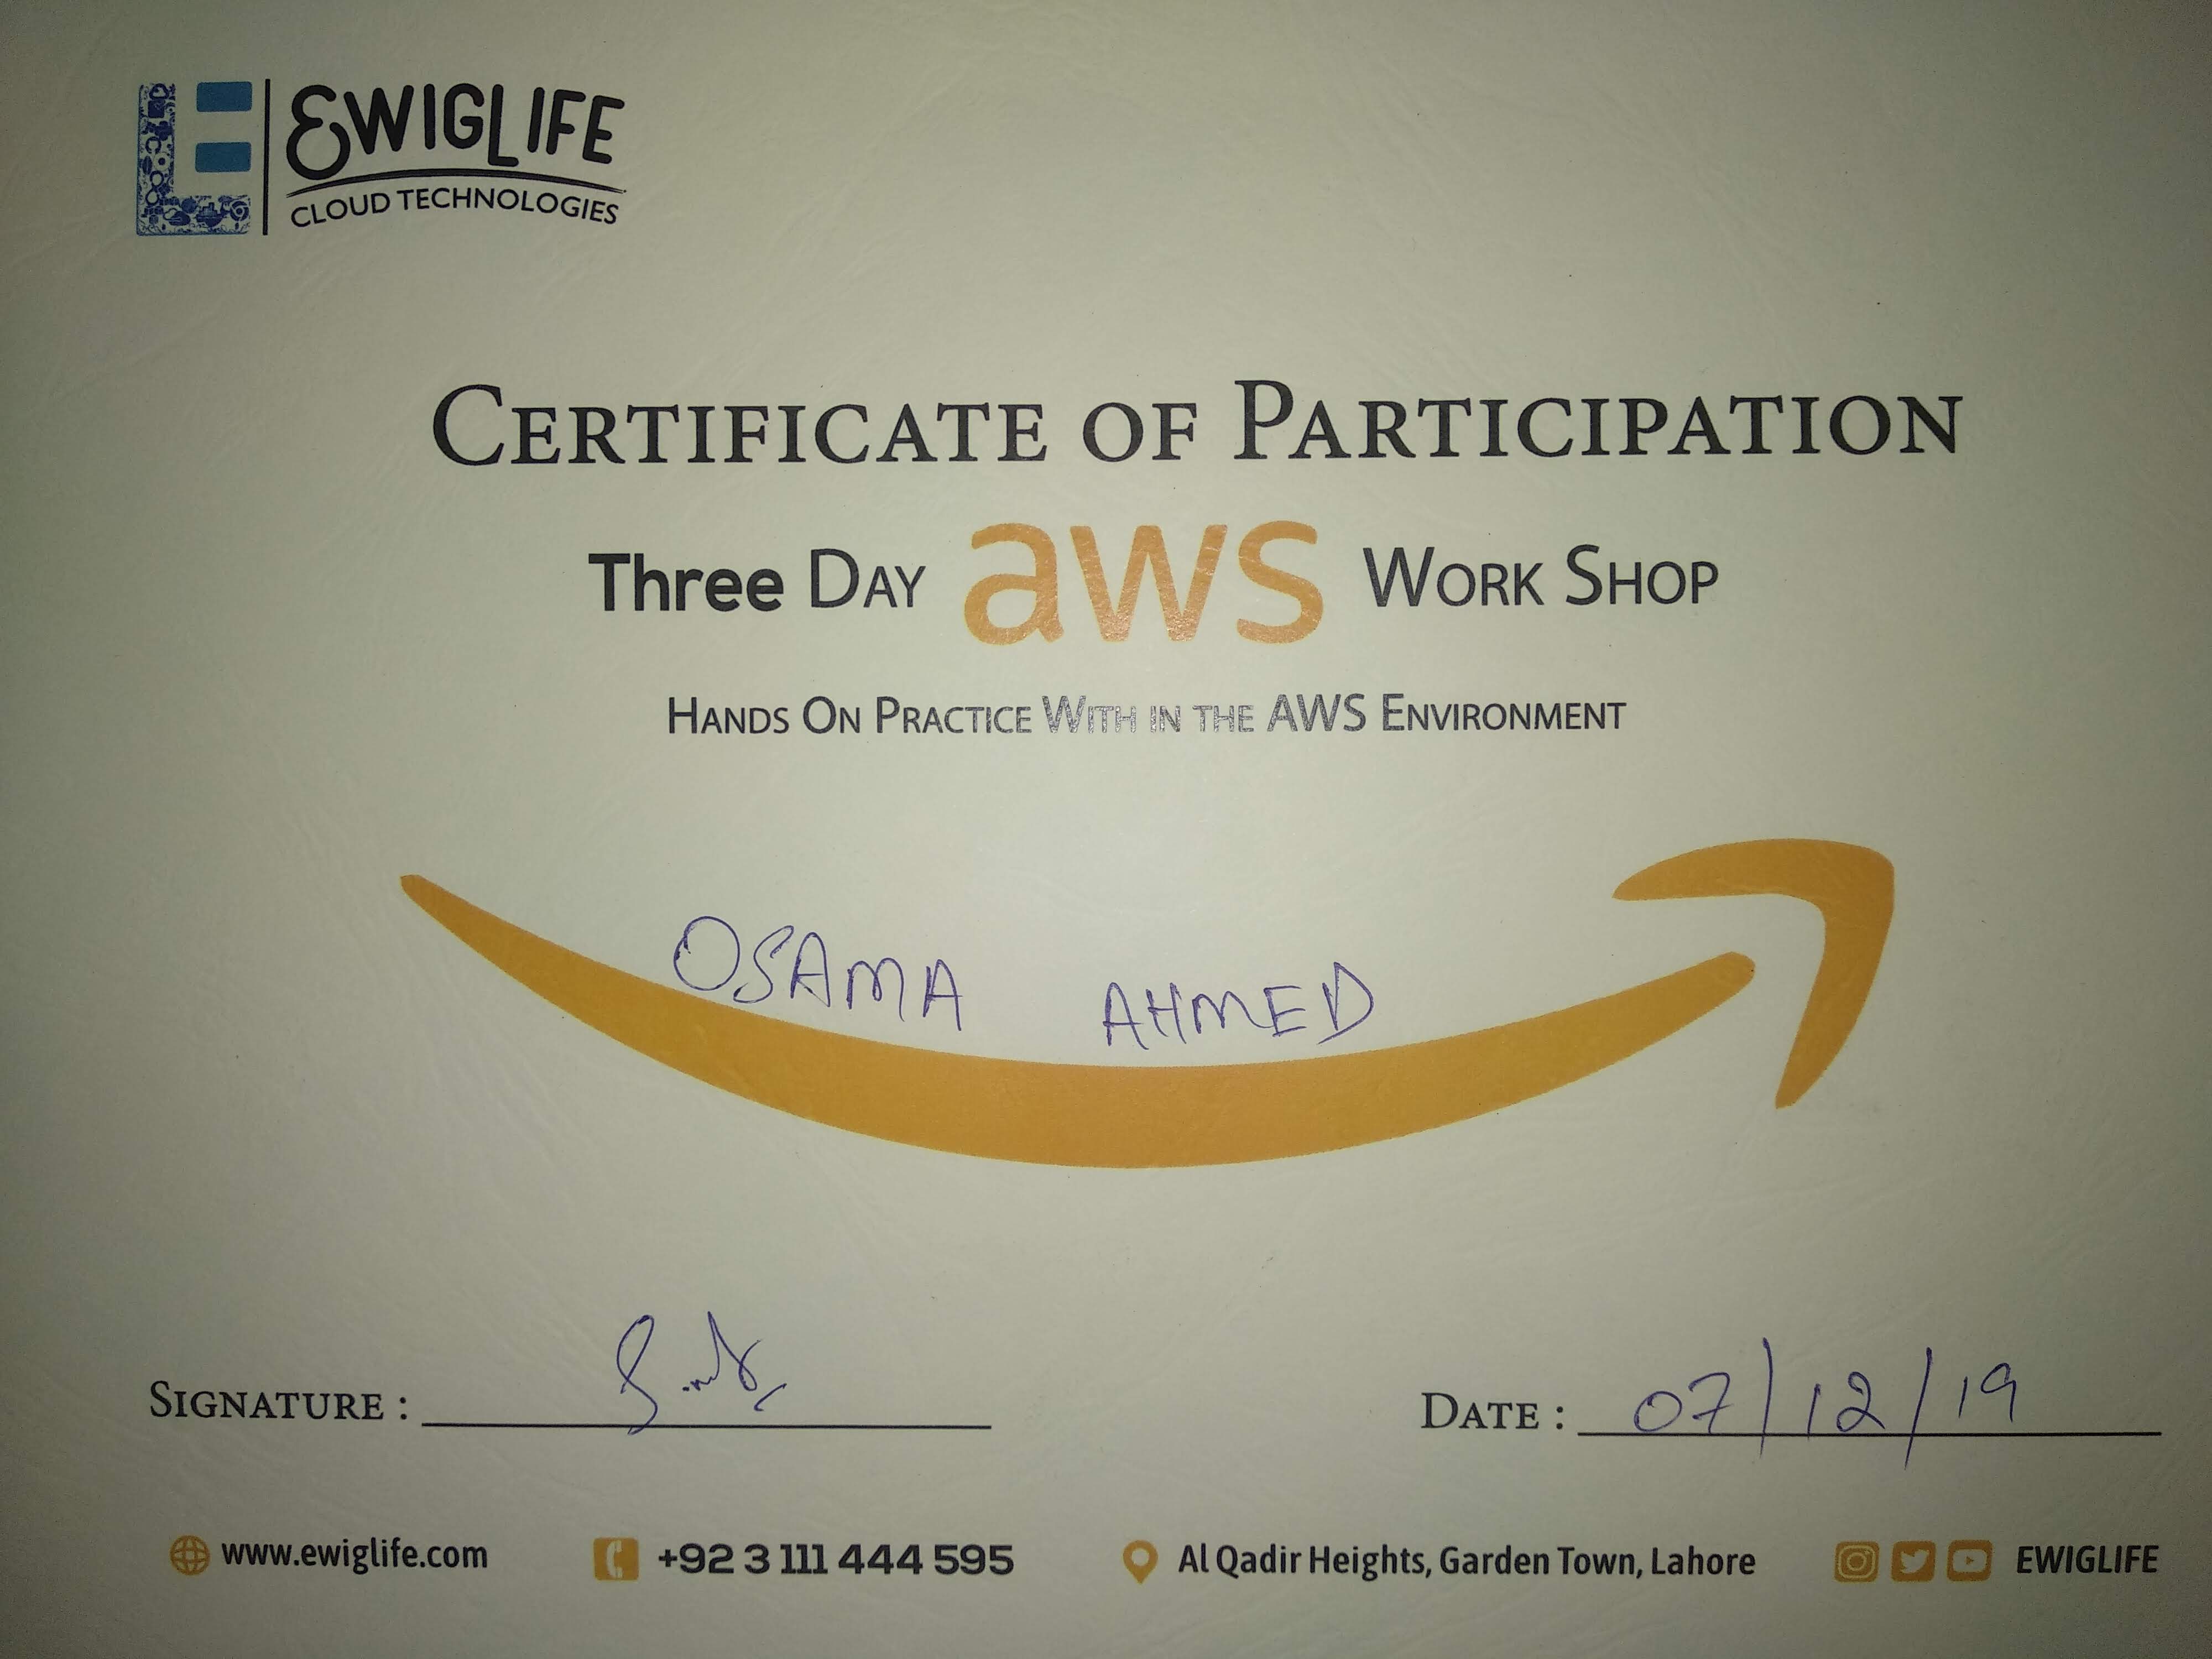 EWIGLIFE
CLOUD TECHNOLOGIES
CERTIFICATE OF PARTICIPATION
Three DAY aws WORK SHOP
HANDS ON PRACTICE WITH IN THE AWS ENVIRONMENT
OSAMA AHMED
SIGNATURE :
DATE : 07/12/19
www.ewiglife.com +92 3 111 444 595 Al Qadir Heights, Garden Town, Lahore EWIGLIFE